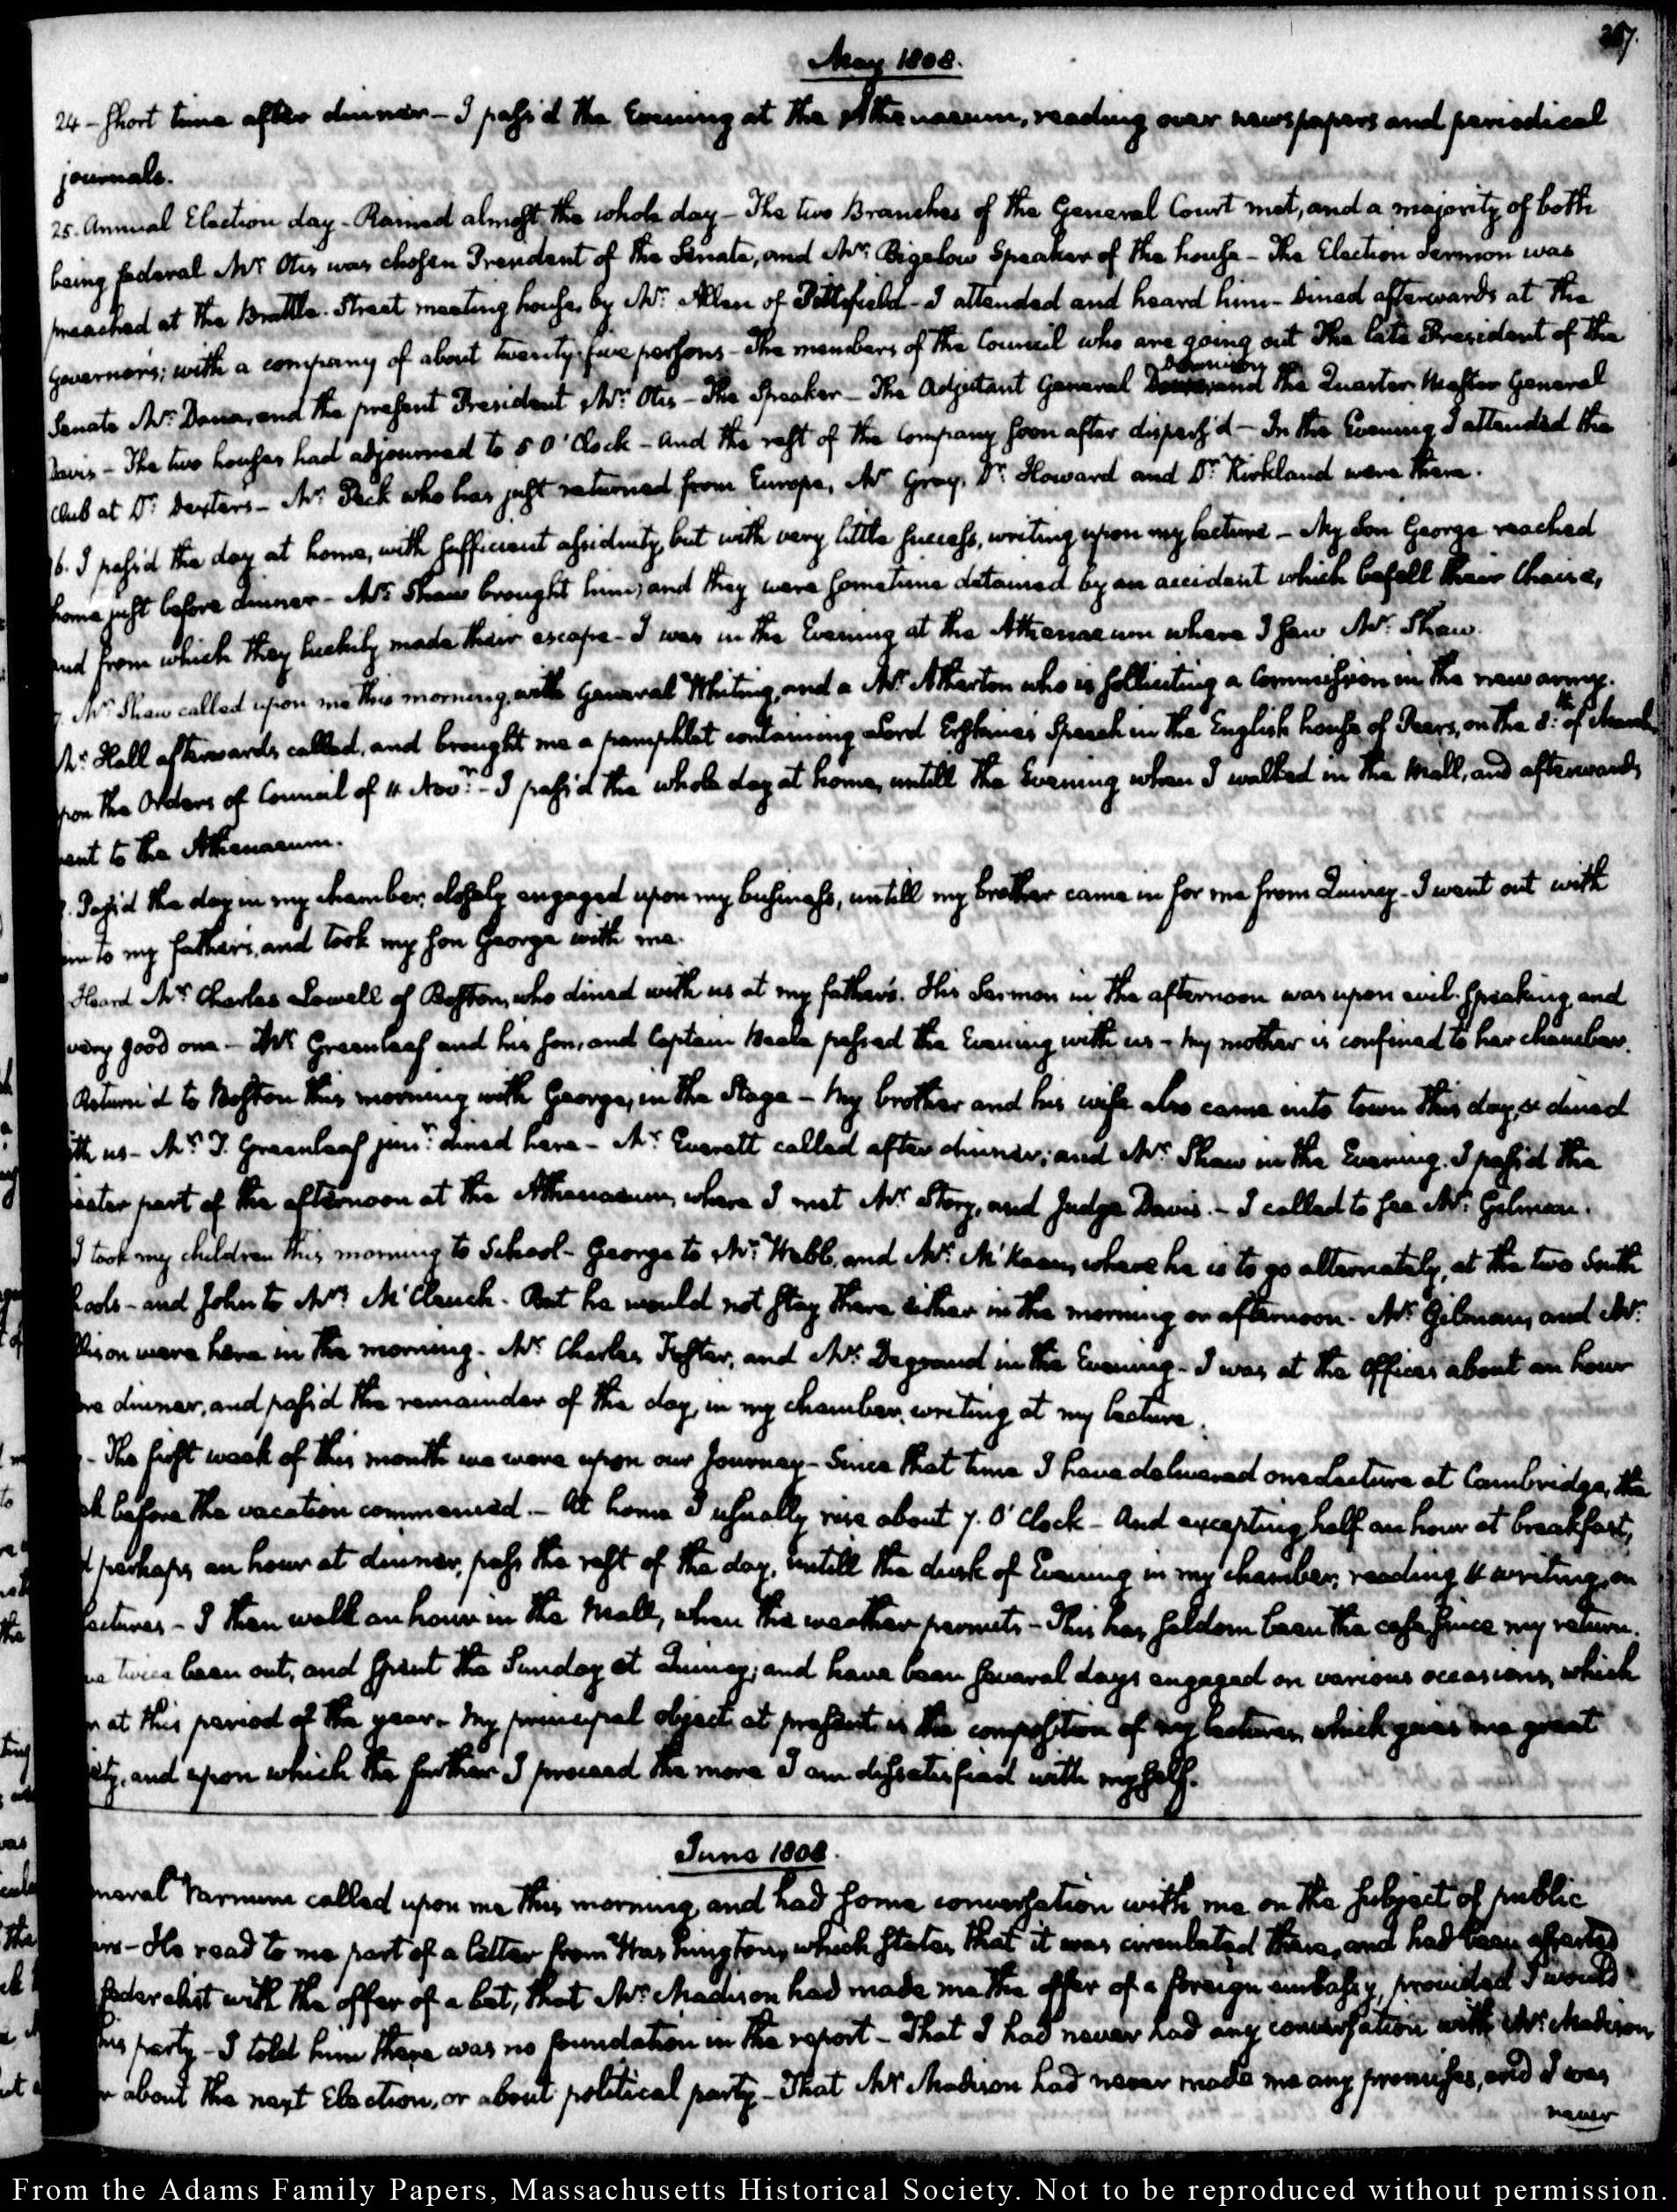 May 1808.
24 - short time after dinner - I pass'd the Evening at the Athenaeum, reading over newspapers and periodical
journals.
25. Annual Election day - Rained almost the whole day - The two Branches of the General Court met, and a majority of both
being federal Mr. Otis was chosen President of the Senate, and Mr. Bigelow Speaker of the house - The Election Sermon was
preached at the Brattle-Street meeting house, by Mr. Allen of Pittsfield - I attended and heard him - Dined afterwards at the
Governor's; with a company of about twenty-five persons - The members of the Council who are going out The late President of the
Senate Mr. Dana, and the present President Mr. Otis - The Speaker - The Adjutant General Donnison, and the Quarter Master General
Davis - The two houses had adjourned to 5 O'Clock - And the rest of the Company soon after dispers'd - In the Evening I attended the
Club at Dr. Dexter's - Mr. Peck who has just returned from Europe, Mr. Gray, Dr. Howard and Dr. Kirkland were there.
6. I pass'd the day at home, with sufficient assiduity, but with very little success, writing upon my lecture - My Son George reached
home just before dinner - Mr. Shaw brought him; and they were sometime detained by an accident which befell their Chaise,
and from which they luckily made their escape - I was in the Evening at the Athenaeum where I saw Mr. Shaw.
7. Mr. Shaw called upon me this morning, with General Whiting, and a Mr. Atherton who is solliciting a Commission in the new army.
Mr. Hall afterwards called, and brought me a pamphlet containing Lord Erskine's Speech in the English house of Peers, on the 8th. of March
upon the Orders of Council of 11 Novr. - I pass'd the whole day at home, untill the Evening when I walked in the Mall, and afterwards
went to the Athenaeum.
Pass'd the day in my chamber, closely engaged upon my business, untill my brother came in for me from Quincy - I went out with
him to my father's, and took my son George with me.
Heard Mr. Charles Lowell of Boston, who dined with us at my father's. His Sermon in the afternoon was upon evil-speaking, and
very good one - Mr. Greenleaf and his son, and Captain Beale passed the Evening with us - My mother is confined to her chamber.
Return'd to Boston this morning with George, in the Stage - My brother and his wife also came into town this day, & dined
with us - Mr. T. Greenleaf junr. dined here - Mr. Everett called after dinner; and Mr. Shaw in the Evening. I pass'd the
greater part of the afternoon at the Athenaeum, where I met Mr. Story, and Judge Davis. - I called to see Mr. Gilman.
I took my children this morning to School - George to Mr. Webb, and Mr. McKean, where he is to go alternately, at the two South
Schools - and John to Mrs. McClench. But he would not stay there either in the morning or afternoon. Mr. Gilman, and Mr.
Ellison were here in the morning. Mr. Charles Foster, and Mr. Degrand in the Evening - I was at the Office about an hour
before dinner, and pass'd the remainder of the day, in my chamber, writing at my lecture.
- The first week of this month we were upon our Journey - Since that time I have delivered one Lecture at Cambridge, the
week before the vacation commenced. - At home I usually rise about 7. O'Clock - And excepting half an hour at breakfast,
and perhaps an hour at dinner, pass the rest of the day, untill the dusk of Evening in my chamber, reading & writing, on
Lectures - I then walk an hour in the Mall, when the weather permits - This has seldom been the case since my return.
have twice been out, and spent the Sunday at Quincy; and have been several days engaged on various occasions, which
at this period of the year. My principal object at present is the composition of my lectures, which gives me great
and upon which the further I proceed the more I am dissatisfied with myself.
June 1808.
General Varnum called upon me this morning, and had some conversation with me on the subject of public
affairs - He read to me part of a letter from Washington, which states that it was circulated there, and had been asserted
federalist with the offer of a bet, that Mr. Madison had made me the offer of a foreign embassy, provided I would
his party - I told him there was no foundation in the report - That I had never had any conversation with Mr. Madison
about the next Election, or about political party - That Mr. Madison had never made me any promises, and I was
never
From the Adams Family Papers, Massachusetts Historical Society. Not to be reproduced without permission.